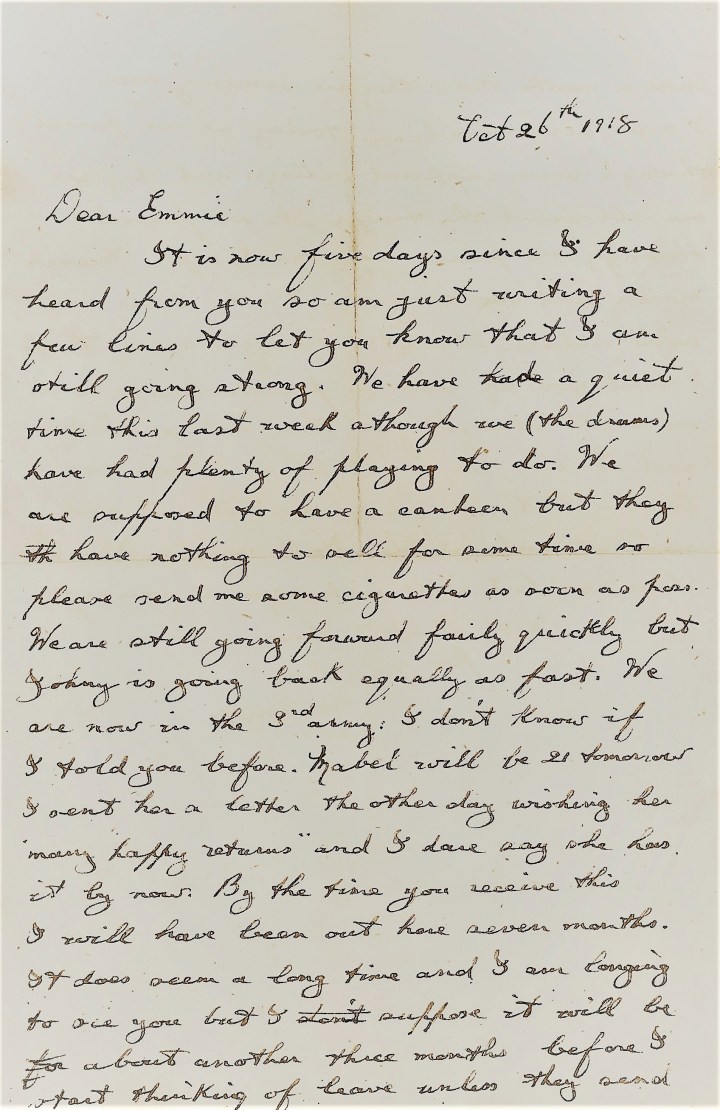 Oct 26th 1918
Dear Emmie
It is now five days since I have
heard from you so am just writing a
few lines to let you know that I am
still going strong. We have hade a quiet
time this last week athough we (the drums)
have had plenty of playing to do. We
are supposed to have a canteen but they
th have nothing to sell for some time so
please send me some cigarettes as soon as poss.
We are still going forward fairly quickly but
Johny is going back equally as fast. We
are now in the 3rd army: I don't know if
I told you before. Mabel will be 21 tomorrow
I sent her a letter the other day wishing her
"many happy returns" and I dare say she has
it by now. By the time you receive this
I will have been out here seven months.
It does seem a long time and I am longing
to see you but I don't suppose it will be
for about another three months before I
start thinking of leave unless they send